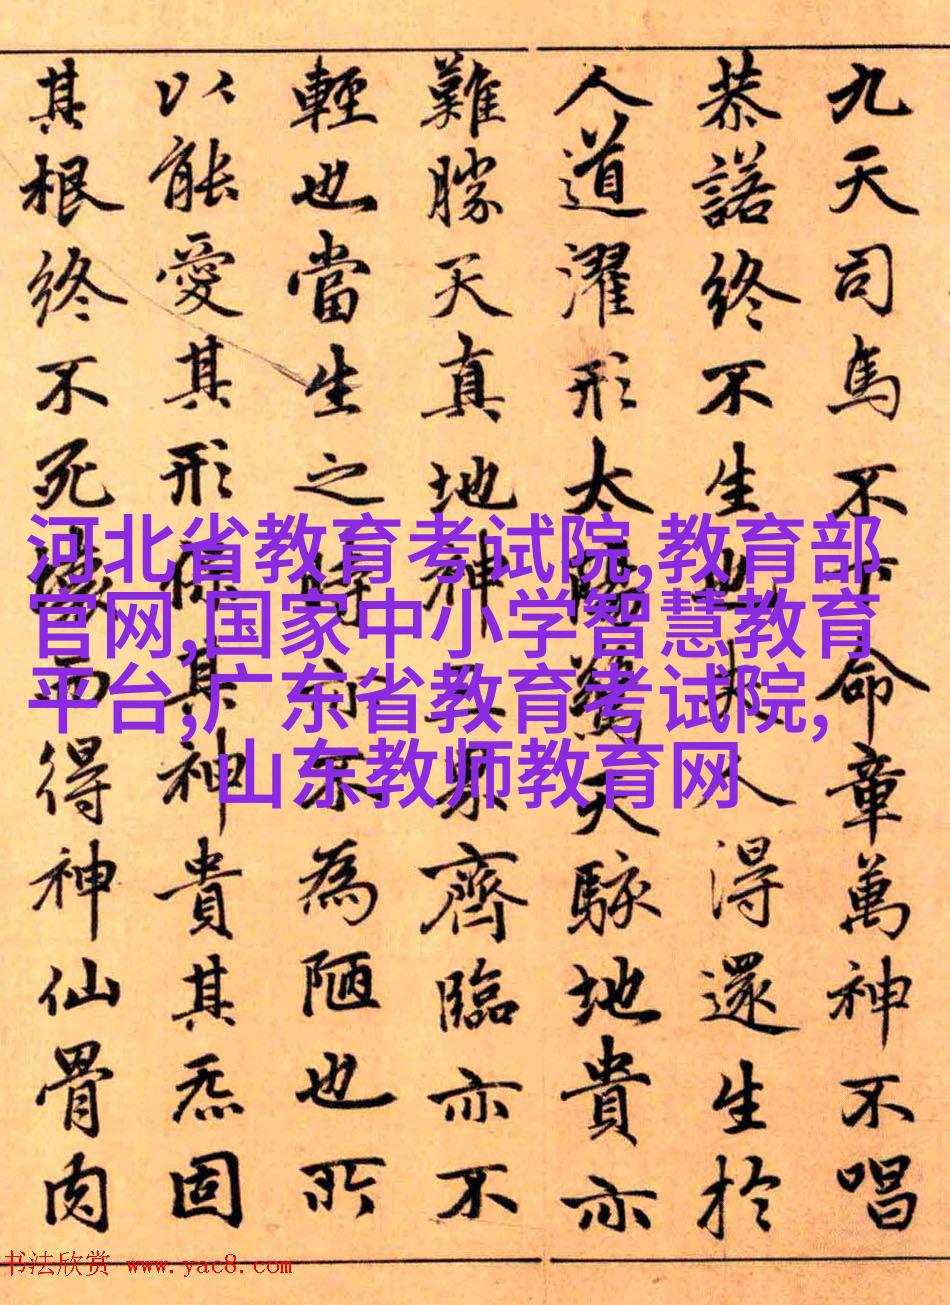 九天司馬不下命章萬神不唱
恭諾終不生也夫人得還生於
人道濯形太陽驚天駭地貴亦
難勝天真地神三界齊臨亦不
輕也當生之時亦不為陋也所
以能愛其形保其神貴其炁固
其根終不死壞而得神仙骨肉
河北省教育考试院,教育部
官网,国家中小学智慧教育
平台,广东省教育考试院,
山东教师教育网
书法欣赏 www.yac8.com